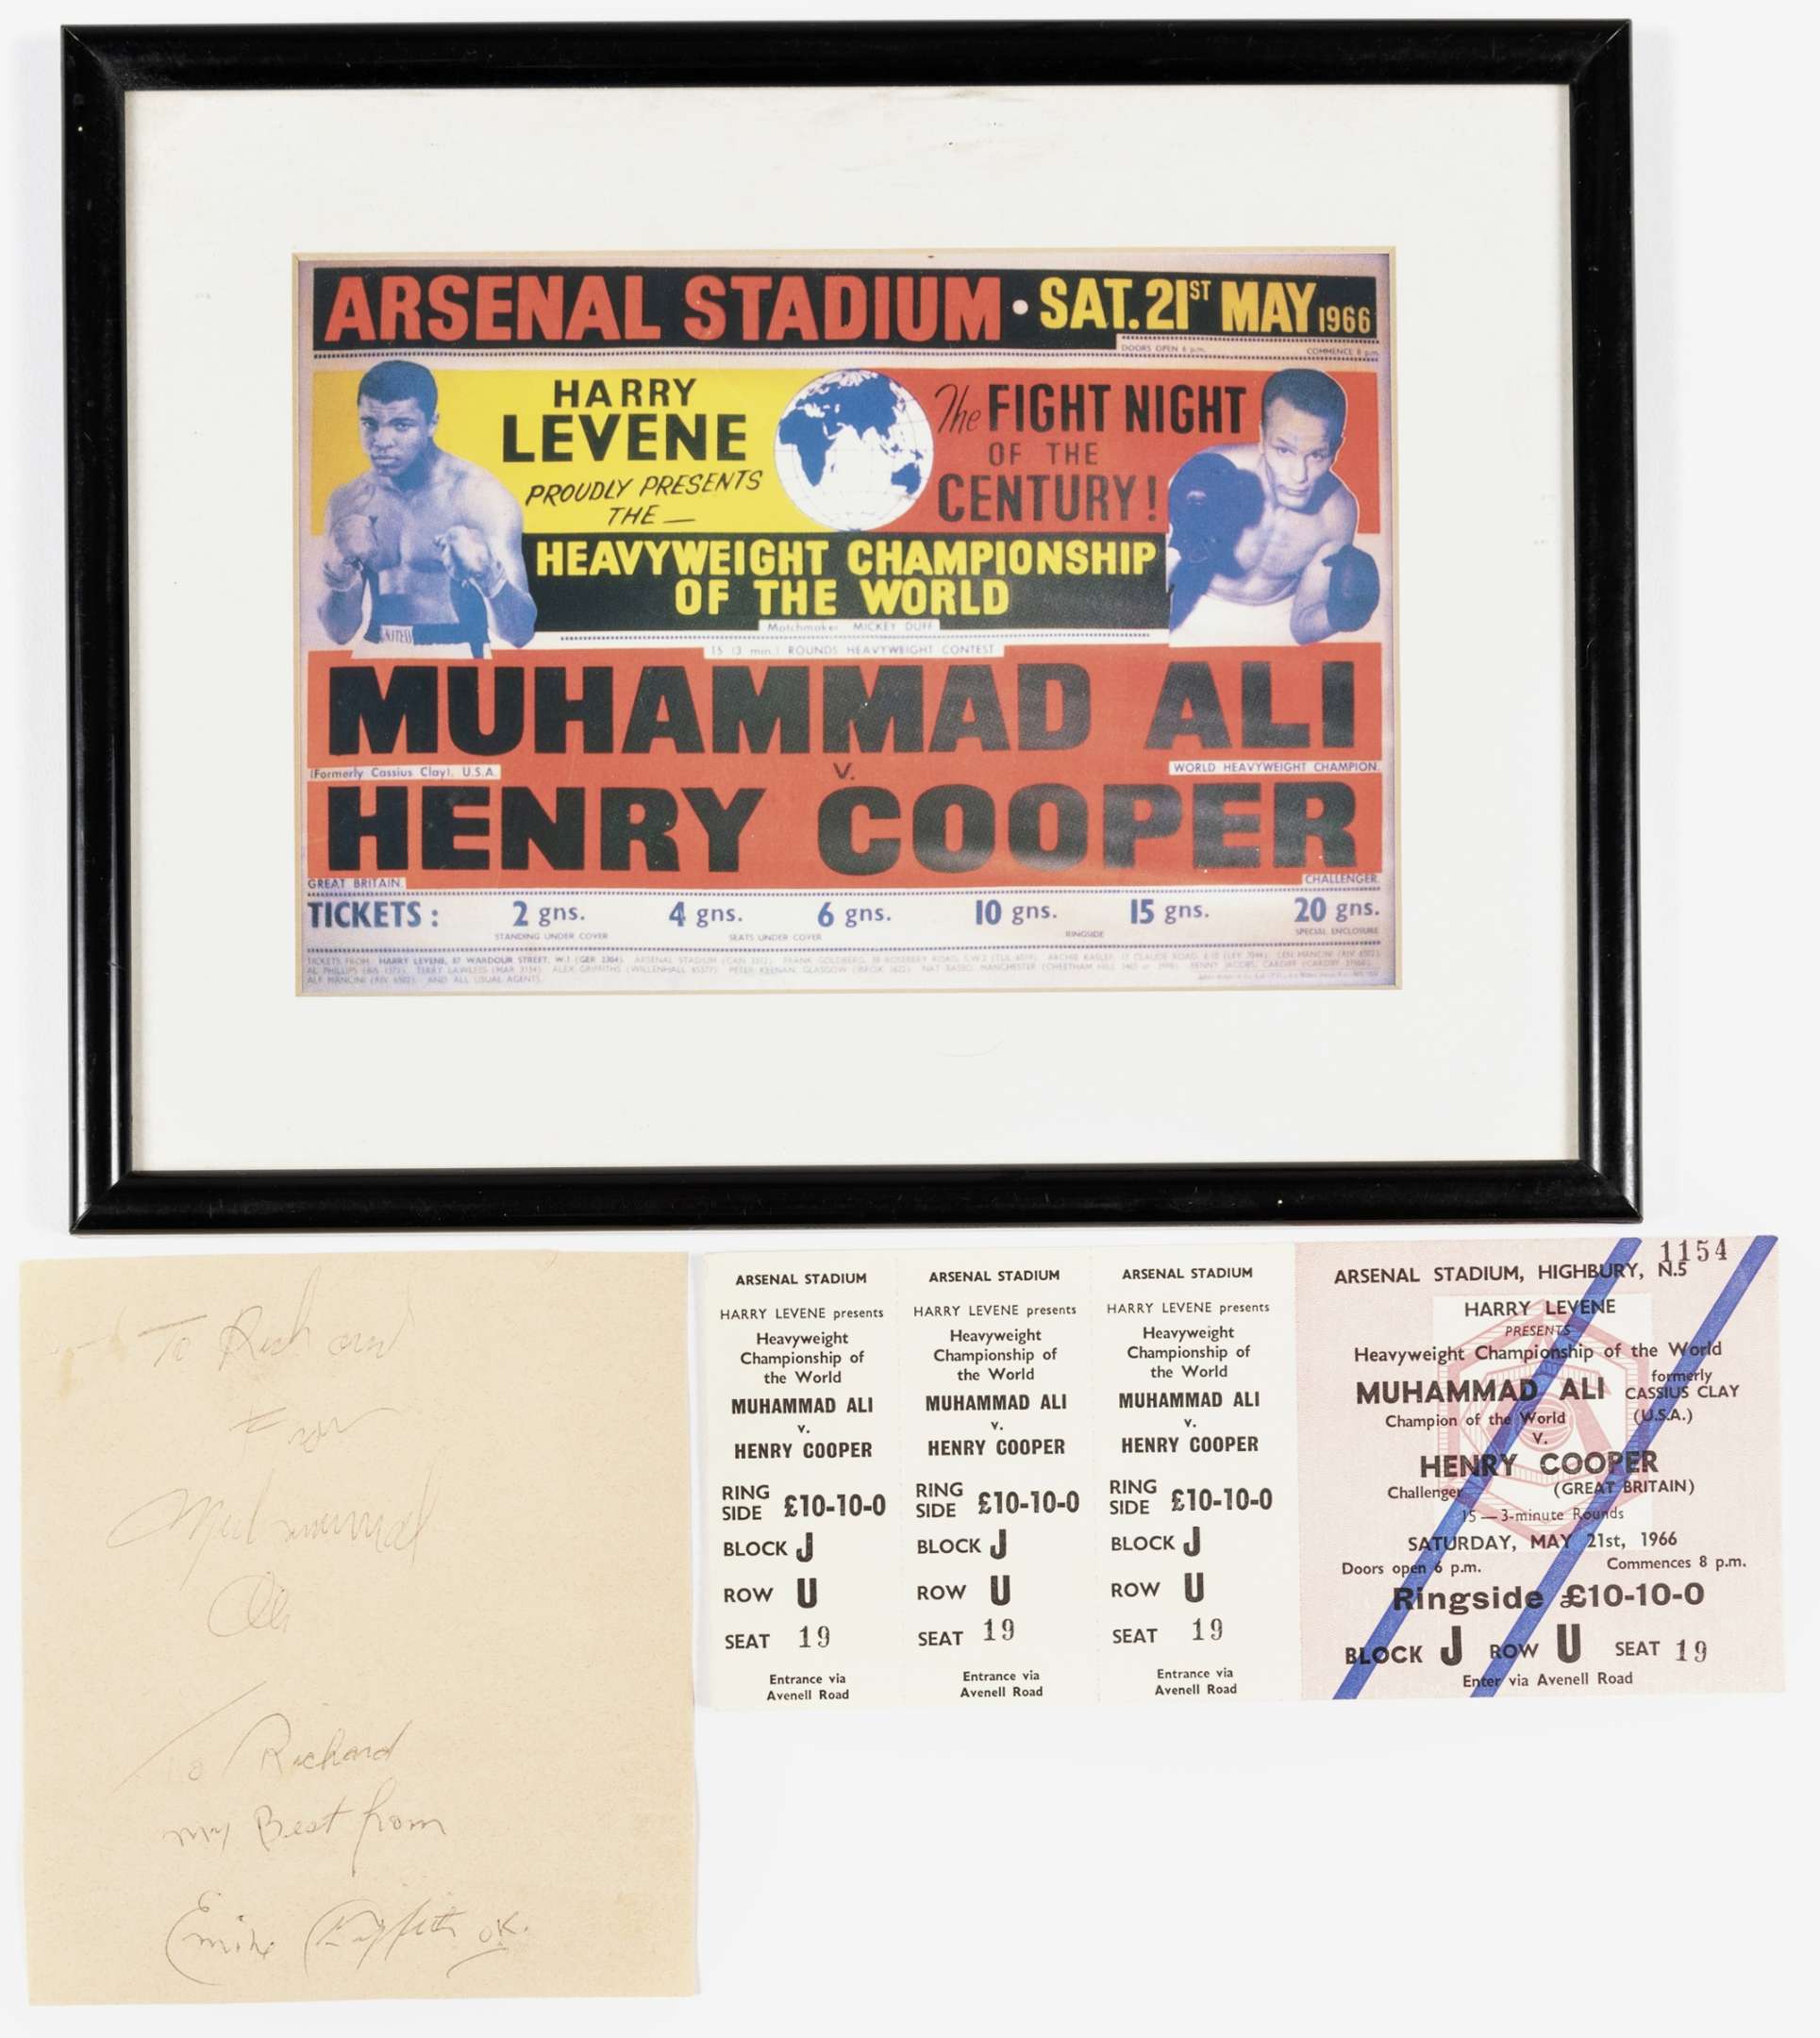 ARSENAL STADIUM • SAT. 21ST MAY 1966
DOORS OPEN 6 p.m. COMMENCE 8 p.m.
HARRY
LEVENE
PROUDLY PRESENTS
THE —
The FIGHT NIGHT
OF THE
CENTURY!
HEAVYWEIGHT CHAMPIONSHIP
OF THE WORLD
Matchmaker MICKEY DUFF
15 (3 min.) ROUNDS HEAVYWEIGHT CONTEST
MUHAMMAD ALI
(Formerly Cassius Clay), U.S.A. V. WORLD HEAVYWEIGHT CHAMPION.
HENRY COOPER
GREAT BRITAIN. CHALLENGER.
TICKETS: 2 gns. 4 gns. 6 gns. 10 gns. 15 gns. 20 gns.
STANDING UNDER COVER SEATS UNDER COVER RINGSIDE SPECIAL ENCLOSURE
TICKETS FROM: HARRY LEVENE, 87 WARDOUR STREET, W.1 (GER 2304). ARSENAL STADIUM
AND ALL USUAL AGENTS.
To Richard
From
Muhammad
Ali
To Richard
my Best from
Emile Griffith OK.
ARSENAL STADIUM
HARRY LEVENE presents
Heavyweight
Championship of
the World
MUHAMMAD ALI
v.
HENRY COOPER
RING
SIDE £10-10-0
BLOCK J
ROW U
SEAT 19
Entrance via
Avenell Road
ARSENAL STADIUM
HARRY LEVENE presents
Heavyweight
Championship of
the World
MUHAMMAD ALI
v.
HENRY COOPER
RING
SIDE £10-10-0
BLOCK J
ROW U
SEAT 19
Entrance via
Avenell Road
ARSENAL STADIUM
HARRY LEVENE presents
Heavyweight
Championship of
the World
MUHAMMAD ALI
v.
HENRY COOPER
RING
SIDE £10-10-0
BLOCK J
ROW U
SEAT 19
Entrance via
Avenell Road
1154
ARSENAL STADIUM, HIGHBURY, N.5
HARRY LEVENE
PRESENTS
Heavyweight Championship of the World
MUHAMMAD ALI formerly CASSIUS CLAY
Champion of the World (U.S.A.)
V.
HENRY COOPER
Challenger (GREAT BRITAIN)
15 — 3-minute Rounds
SATURDAY, MAY 21st, 1966
Doors open 6 p.m. Commences 8 p.m.
Ringside £10-10-0
BLOCK J ROW U SEAT 19
Enter via Avenell Road